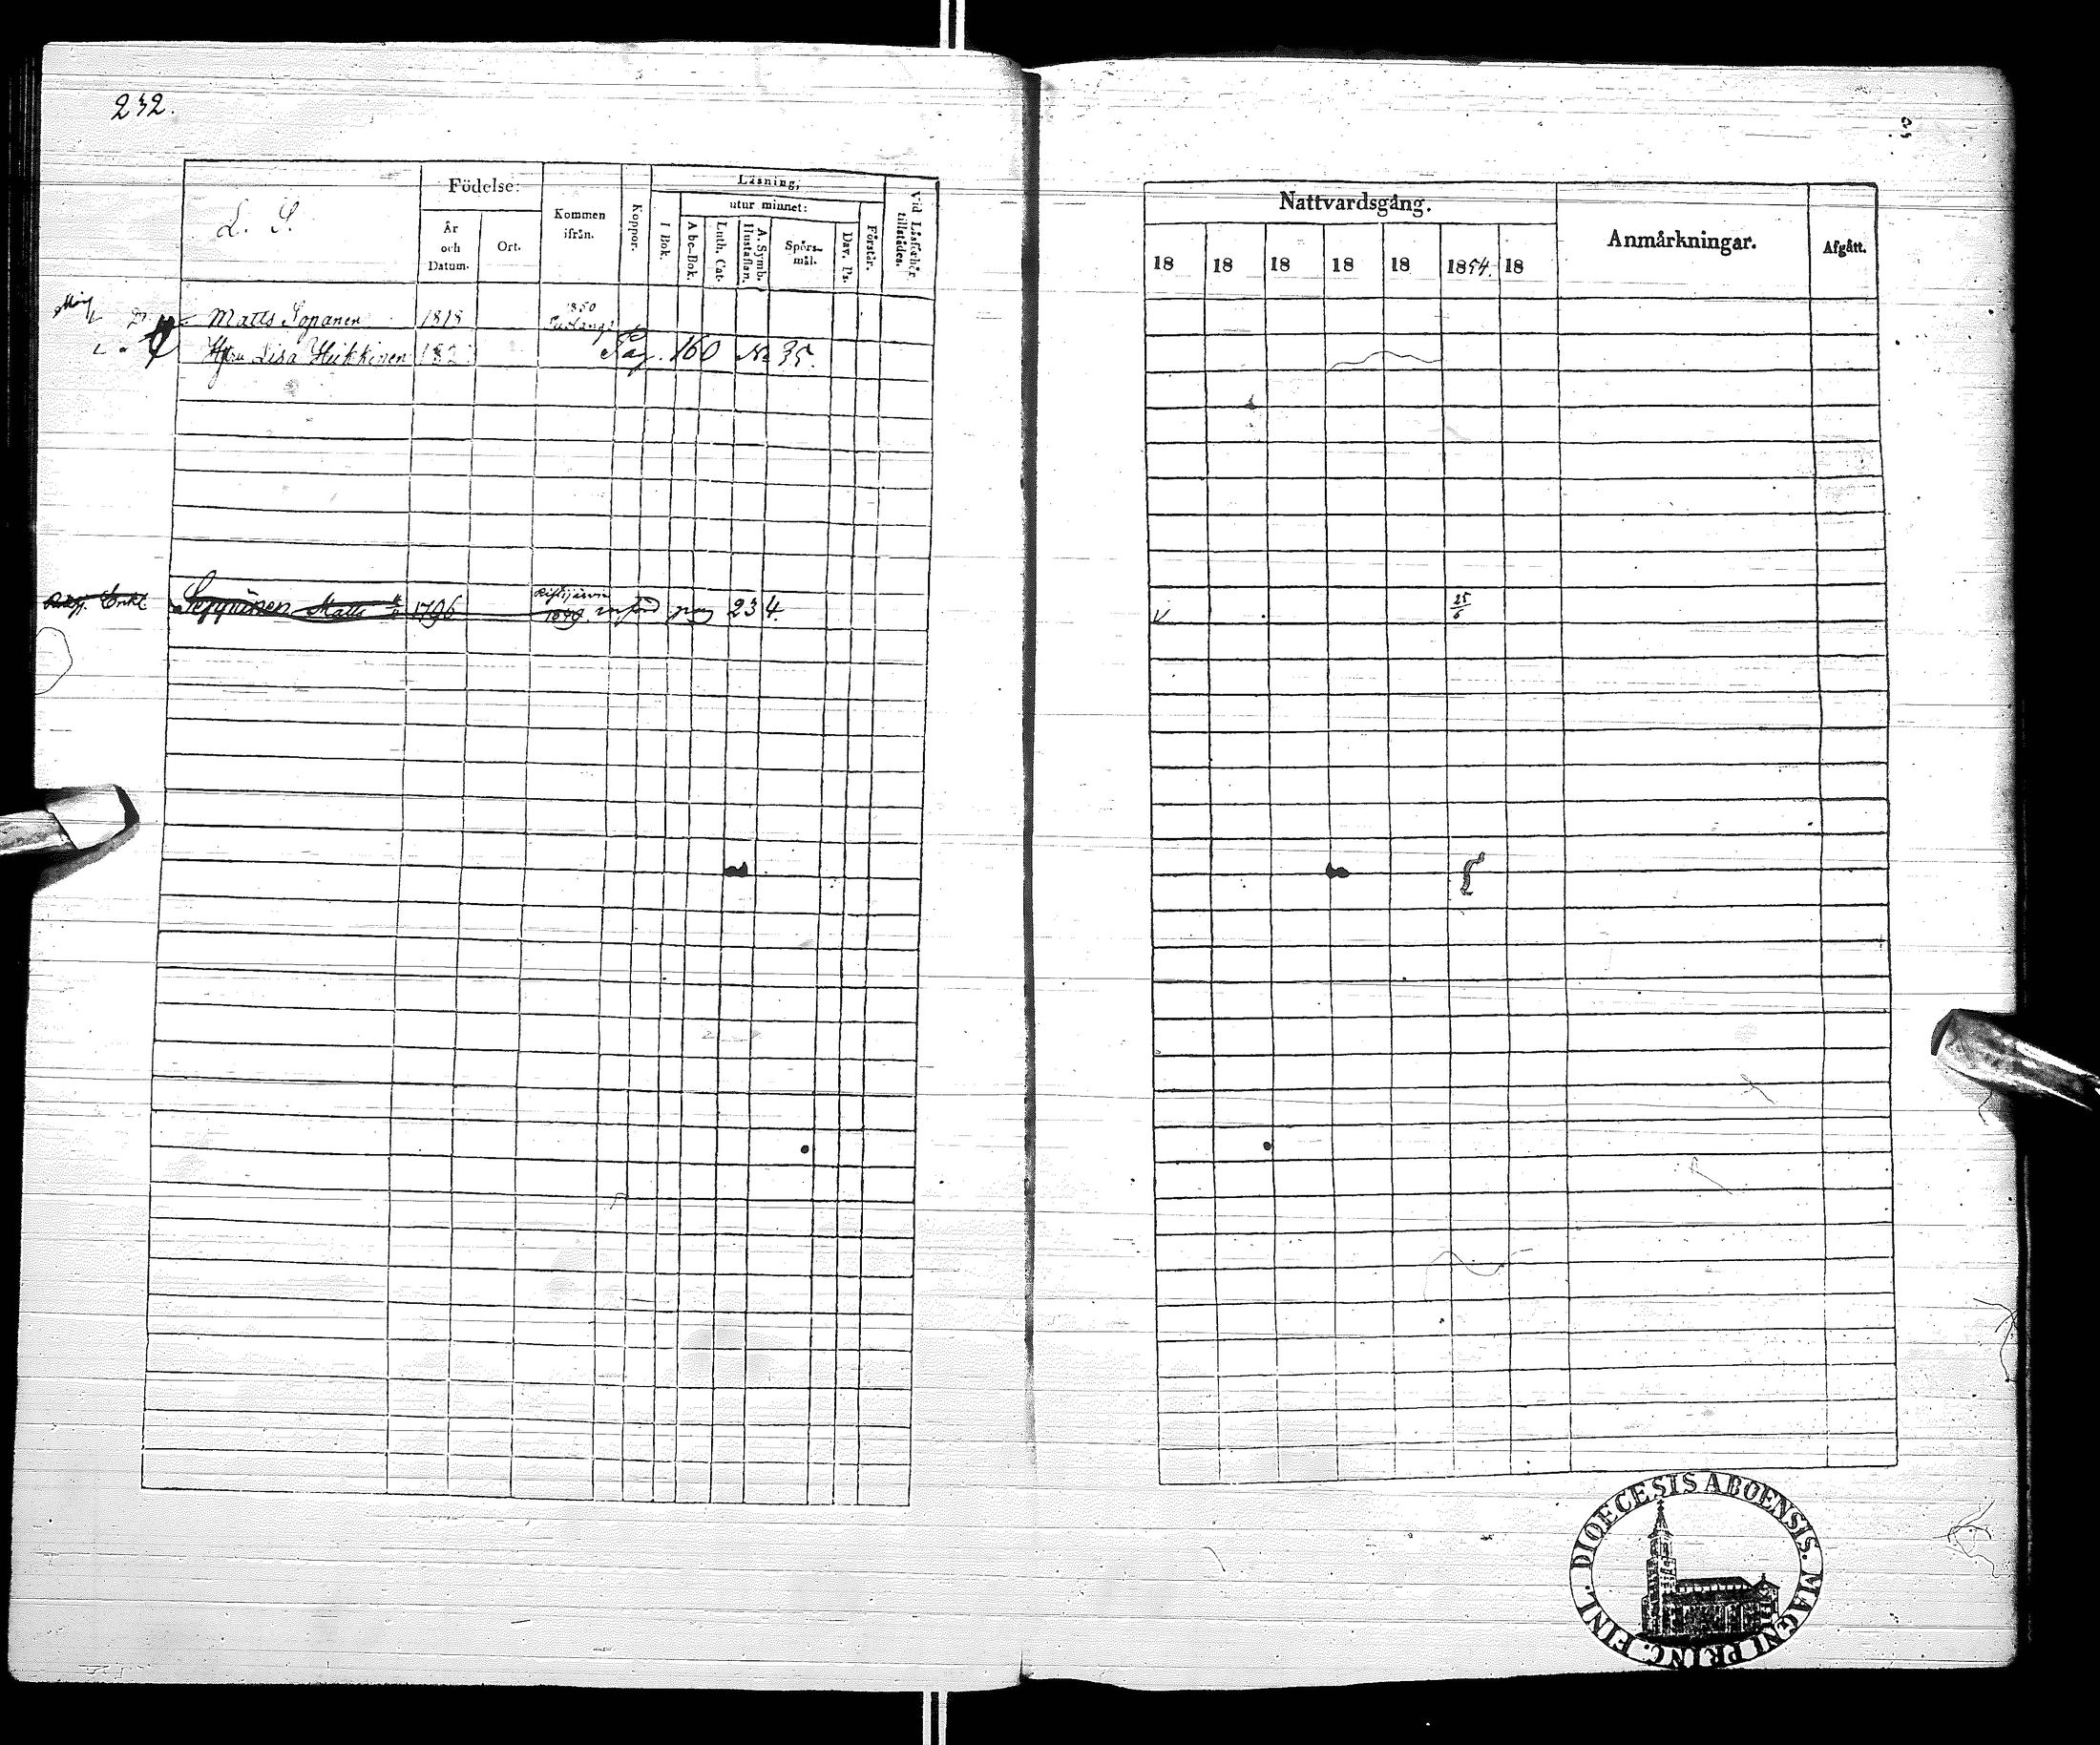 232.
L. S.
Födelse:
År och Datum.
Ort.
Kommen ifrån.
Koppor.
Läsning,
I Bok.
utur minnet:
Abc-Bok.
Luth. Cat.
A. Symb. Hustaflan.
Spörs-mål.
Dav. Ps.
Förstår.
Vid Läsförhör tillstädes.
Nattvardsgång.
18 18 18 18 18 1854. 18
Anmärkningar.
Afgått.
Matts Sopanen 1818 1850
Hustru Lisa Heikkinen 182 Pag. 160 No 35.
Enkl. Seppinen Matts 1796 1849 införd pag 234.
25/6
DIOECESIS ABOENSIS. MAGNI PRINC. FINL.